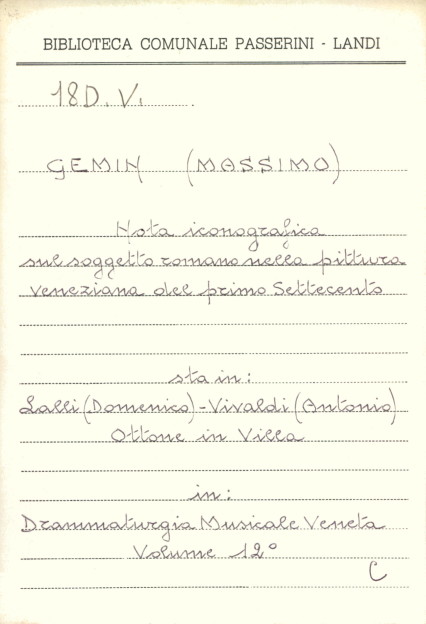 BIBLIOTECA COMUNALE PASSERINI - LANDI
18D. V.
GEMIN (MASSIMO)
Nota iconografica
sul soggetto romano nella pittura
veneziana del primo Settecento
sta in:
Lalli (Domenico) - Vivaldi (Antonio)
Ottone in Villa
in:
Drammaturgia Musicale Veneta
Volume 12°
C